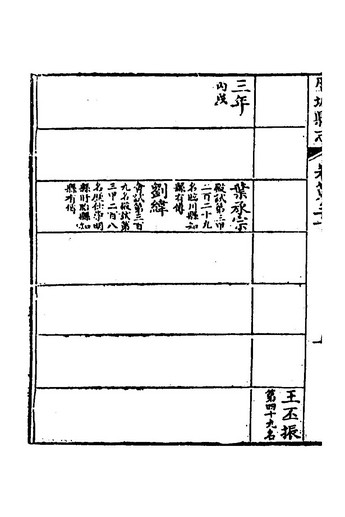 城縣志
卷第三十
王丕振
第四十九名
三年
丙戌
葉承宗
殿試第三甲
二百二十九
名臨川縣知
縣有傳
劉緯
會試第三百
九名殿試第
三甲二百八
名歷任 明
縣盱眙縣知
縣有傳